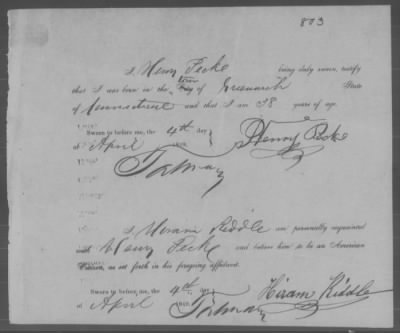 803
I Henry Peke being duly sworn, testify
that I was born in the town of Greenwich State
of Connecticut and that I am 38 years of age.
Sworn to before me, the 4th day
of April
Henry Peke
I Hiram Riddle am personally acquainted
with Henry Peke and believe him to be an American
Citizen, as set forth in his foregoing affidavit.
Sworn to before me, the 4th day
of April
Hiram Riddle